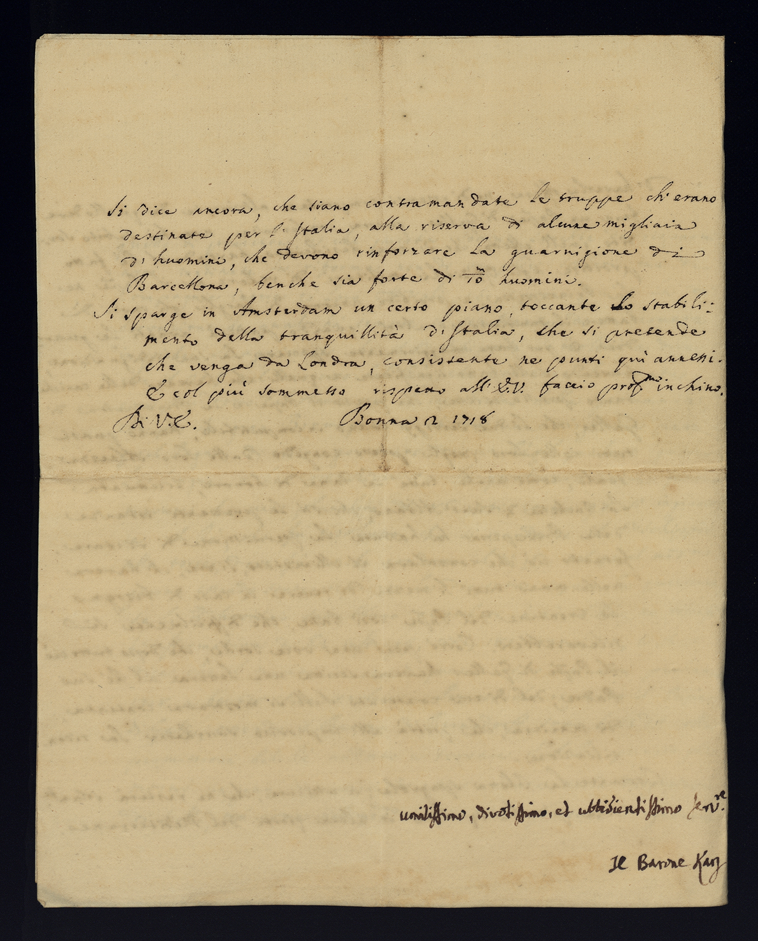 Si dice ancora, che siano contramandate le truppe ch'erano
destinate per l'Italia, alla riserva di alcune migliaia
di huomini, che devono rinforzare la guarnigione di
Barcellona, benche sia forte di 10 huomini.
Si sparge in Amsterdam un certo piano, toccante lo stabili=
mento della tranquillità d'Italia, che si pretende
che venga da Londra, consistente ne punti quì annessi.
E col più sommesso rispetto all' E.V. faccio profmo inchino.
Di V.E. Bonna 2 1718
umilissimo, divotissimo, et ubbidientissimo Servre
Il Barone Karg